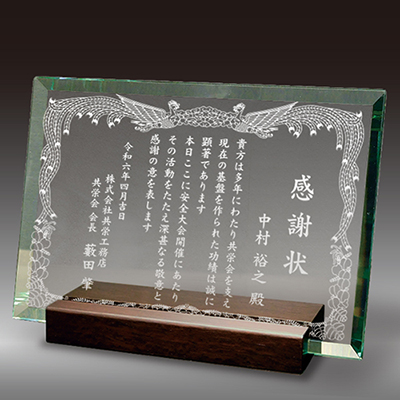 感謝状
中村裕之殿
貴方は多年にわたり共栄会をささえ
現在の基盤を作られた功績は誠に
顕著であります
本日ここに安全大会開催にあたり
その活動をたたえ深甚なる敬意と
感謝の意を表します
令和六年四月吉日
株式会社共栄工務店
共栄会 会長 藪田 肇